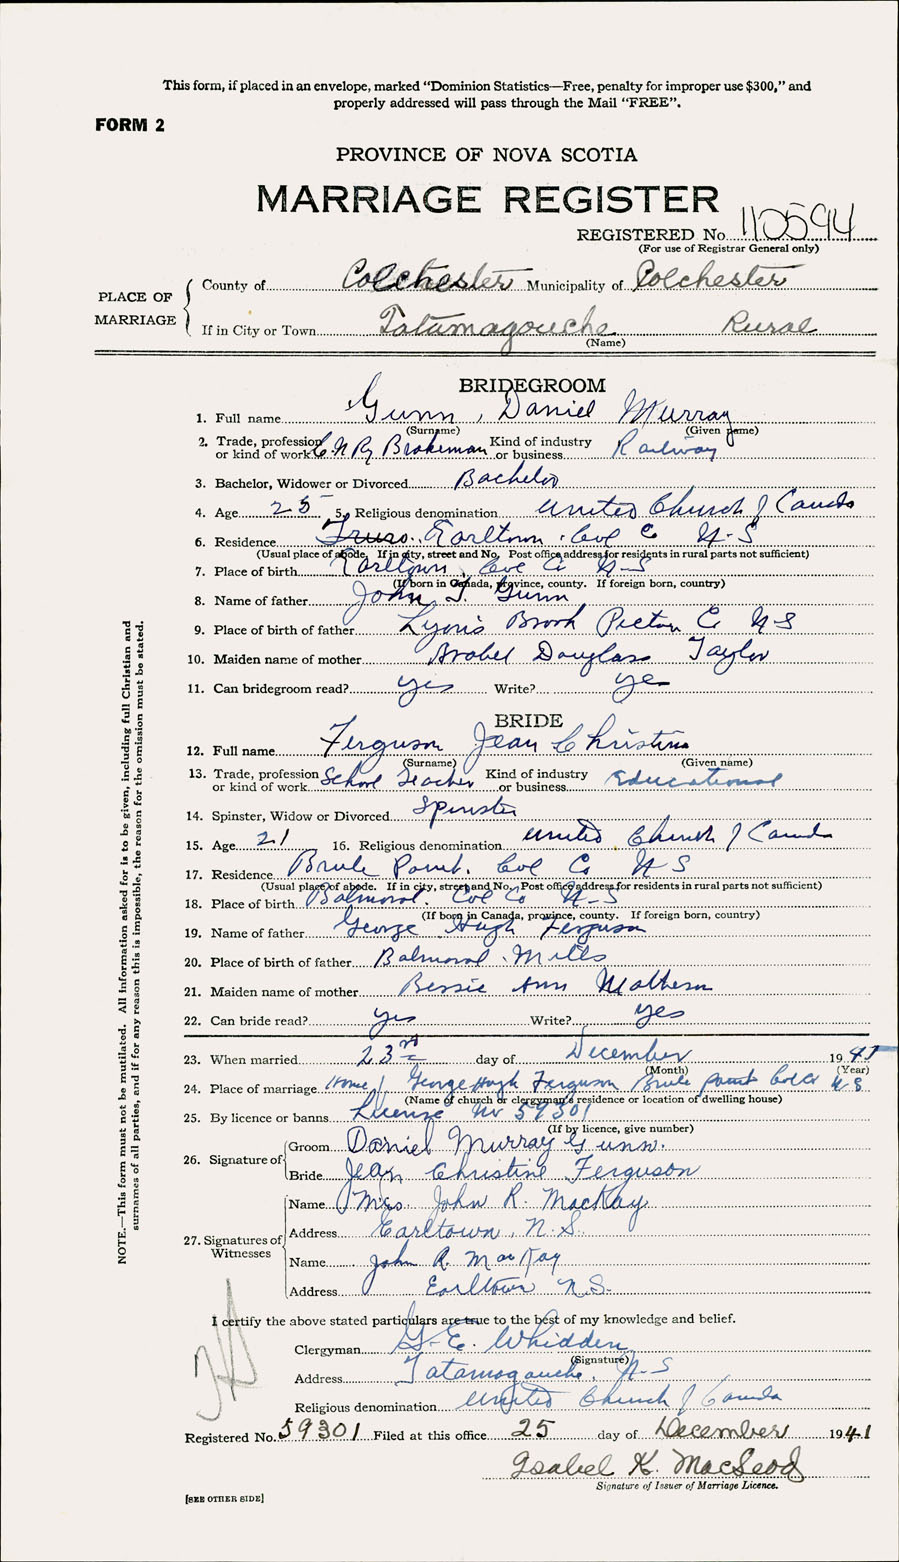 This form, if placed in an envelope, marked "Dominion Statistics—Free, penalty for improper use $300," and
properly addressed will pass through the Mail "FREE".
FORM 2
PROVINCE OF NOVA SCOTIA
MARRIAGE REGISTER
REGISTERED No. 110594
(For use of Registrar General only)
PLACE OF MARRIAGE
County of Colchester Municipality of Colchester
If in City or Town Tatamagouche Rural
(Name)
BRIDEGROOM
1. Full name Gunn, Daniel Murray
(Surname) (Given name)
2. Trade, profession or kind of work C.N.Ry Brakeman Kind of industry or business Railway
3. Bachelor, Widower or Divorced Bachelor
4. Age 25 5. Religious denomination United Church of Canada
6. Residence Truro. Earltown. Col C N-S
(Usual place of abode. If in city, street and No. Post office address for residents in rural parts not sufficient)
7. Place of birth Earltown, Col Co N-S
(If born in Canada, province, county. If foreign born, country)
8. Name of father John T. Gunn
9. Place of birth of father Lyons Brook Pictou C NS
10. Maiden name of mother Arabel Douglass Taylor
11. Can bridegroom read? yes Write? yes
BRIDE
12. Full name Ferguson Jean Christine
(Surname) (Given name)
13. Trade, profession or kind of work School Teacher Kind of industry or business Educational
14. Spinster, Widow or Divorced Spinster
15. Age 21 16. Religious denomination United Church of Canada
17. Residence Brule Point. Col Co N S
(Usual place of abode. If in city, street and No. Post office address for residents in rural parts not sufficient)
18. Place of birth Balmoral. Col Co N-S
(If born in Canada, province, county. If foreign born, country)
19. Name of father George Hugh Ferguson
20. Place of birth of father Balmoral Mills
21. Maiden name of mother Bessie Ann Matheson
22. Can bride read? yes Write? yes
23. When married 23rd day of December 1941
(Month) (Year)
24. Place of marriage Home of George Hugh Ferguson Brule point Col Co N S
(Name of church or clergyman's residence or location of dwelling house)
25. By licence or banns License Nr 59301
(If by licence, give number)
26. Signature of
Groom Daniel Murray Gunn.
Bride Jean Christine Ferguson
27. Signatures of Witnesses
Name Mrs. John R. MacKay
Address Earltown, N.S.
Name John R. MacKay
Address Earltown N.S.
I certify the above stated particulars are true to the best of my knowledge and belief.
Clergyman G. E. Whidden
(Signature)
Address Tatamagouche, N-S
Religious denomination United Church of Canada
Registered No. 59301 Filed at this office 25 day of December 1941
Isabel K. MacLeod
Signature of Issuer of Marriage Licence.
[SEE OTHER SIDE]
NOTE.—This form must not be mutilated. All information asked for is to be given, including full Christian and
surnames of all parties, and if for any reason this is impossible, the reason for the omission must be stated.